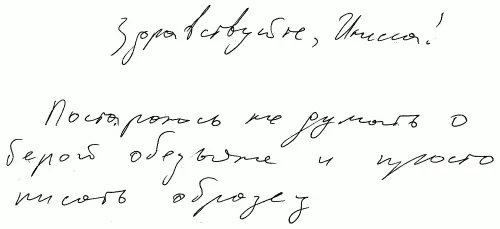 Здравствуйте, Инесса!
Постараюсь не думать о
белой обезьяне и просто
писать образец